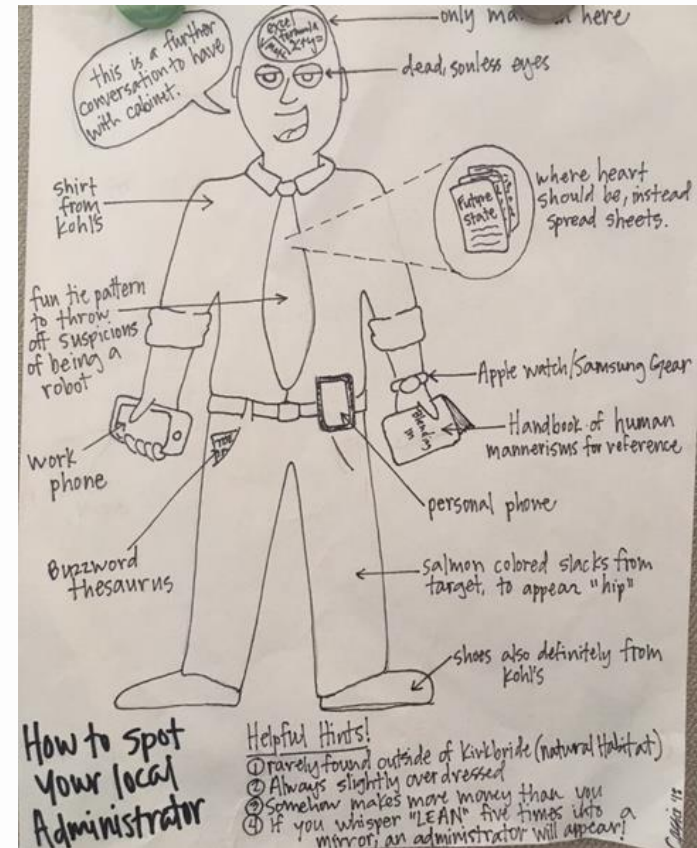 only ma
here
excel
formula
x+y=
this is a further
conversation to have
with cabinet.
dead, souless eyes
shirt
from
Kohl's
Future
State
where heart
should be, instead
spread sheets.
fun tie pattern
to throw
off suspicions
of being a
robot
Apple watch/Samsung Gear
Blending
in
Handbook of human
mannerisms for reference
work
phone
personal phone
Buzzword
thesaurus
salmon colored slacks from
target, to appear "hip"
shoes also definitely from
Kohl's
How to spot
your local
Administrator
Helpful Hints!
① rarely found outside of Kirkbride (natural Habitat)
② Always slightly overdressed
③ Somehow makes more money than you
④ if you whisper "LEAN" five times into a
mirror, an administrator will appear!
'18